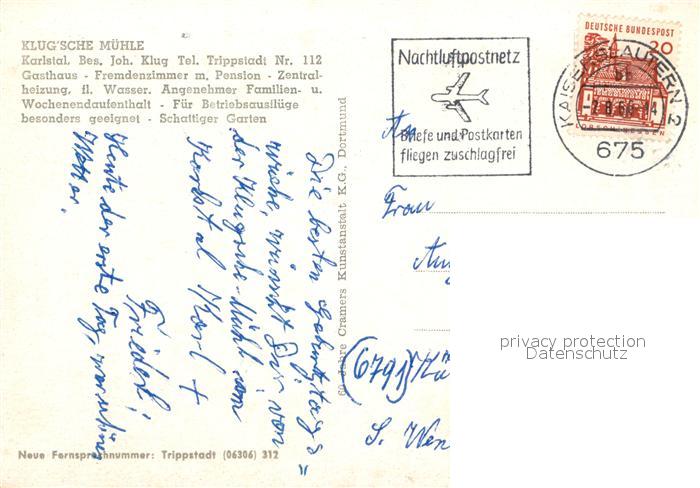 KLUG'SCHE MÜHLE
Karlstal, Bes. Joh. Klug Tel. Trippstadt Nr. 112
Gasthaus - Fremdenzimmer m. Pension - Zentral-
heizung, fl. Wasser. Angenehmer Familien- u.
Wochenendaufenthalt - Für Betriebsausflüge
besonders geeignet - Schattiger Garten
Die besten Geburtstags
wünsche, wünscht Dir von
der Klugsche-Mühle vom
Karlstal Karl +
Friedel
Heute der erste Tag,
Wetter.
Neue Fernsprechnummer: Trippstadt (06306) 312
60 Jahre Cramers Kunstanstalt K.G., Dortmund
Nachtluftpostnetz
Briefe und Postkarten
fliegen zuschlagfrei
DEUTSCHE BUNDESPOST
20
KAISERSLAUTERN 2
675
An
Frau
(6791)
S. Wen
privacy protection
Datenschutz